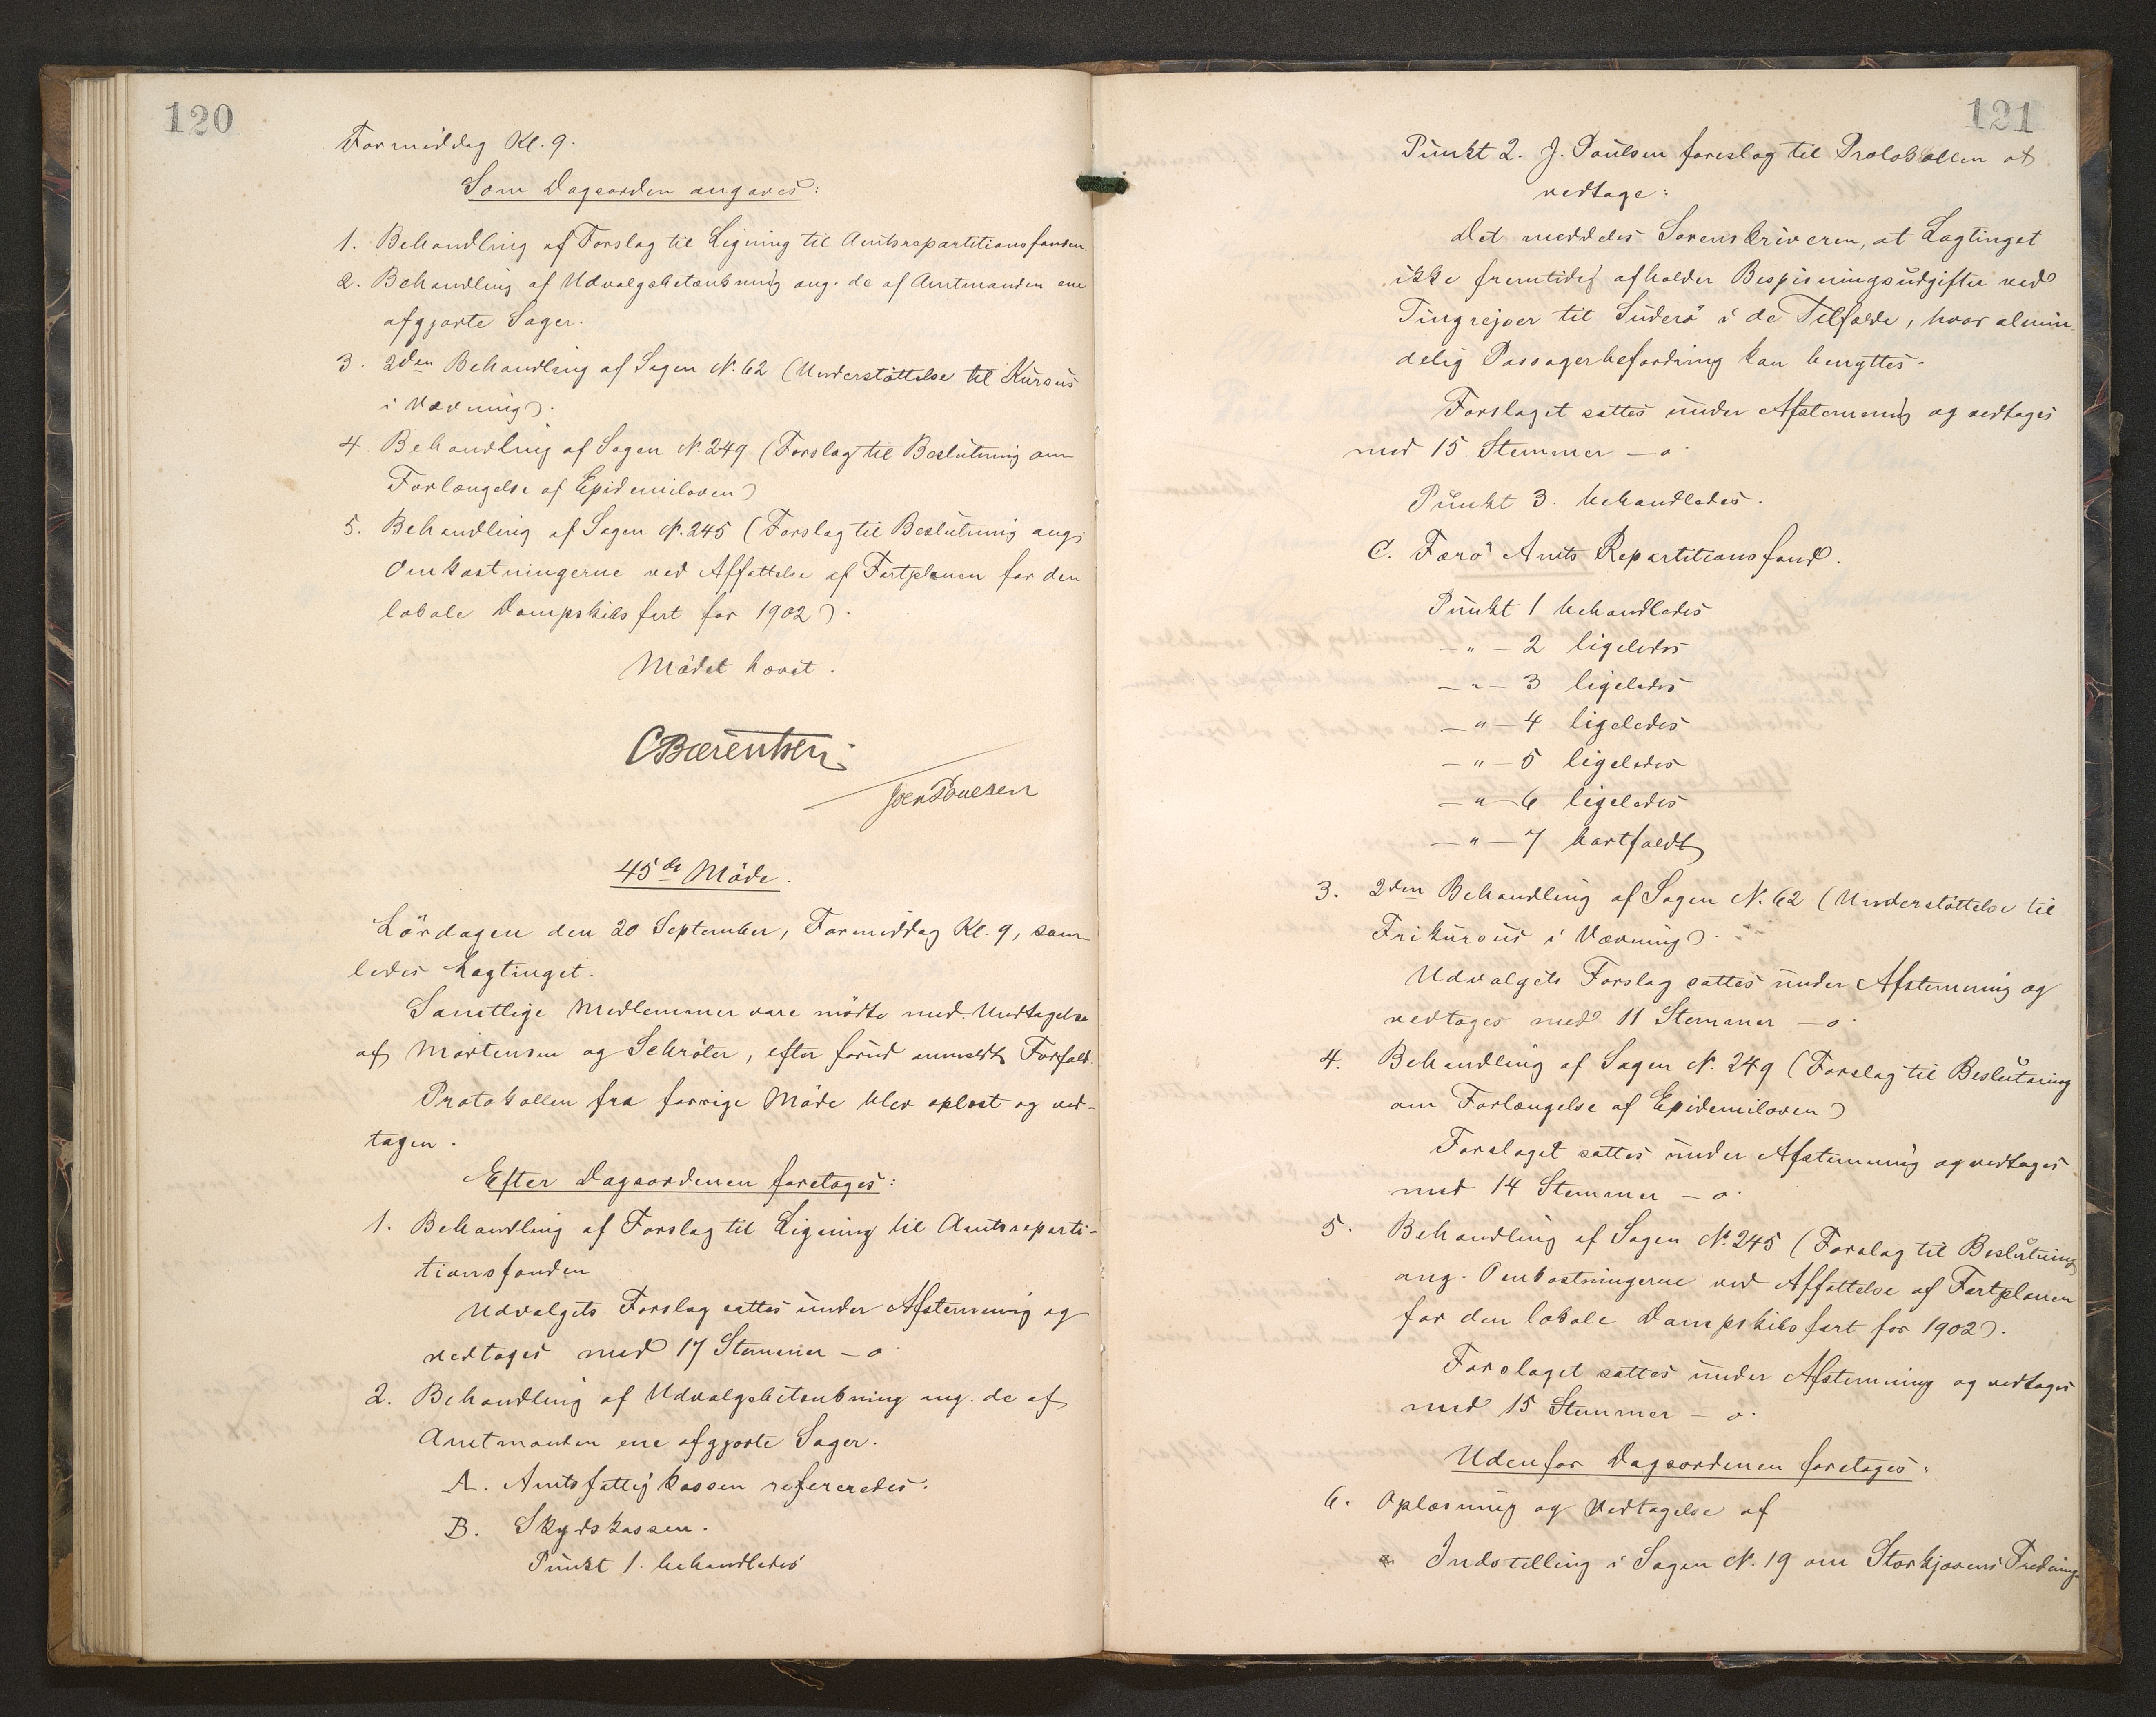 120
Formiddag Kl. 9.
Som Dagsorden angaves:
1. Behandling af Forslag til Ligning til Amtsrepartitionsfonden.
2. Behandling af Udvalgsbetænkning ang. de af Amtmanden ene
afgjorte Sager.
3. 2den Behandling af Sagen N. 62 (Understöttelse til Kursus
i Vævning).
4. Behandling af Sagen N. 249 (Forslag til Beslutning om
Forlængelse af Epidemiloven)
5. Behandling af Sagen N. 245 (Forslag til Beslutning ang.
Omkostningerne ved Affattelse af Fartplanen for den
lokale Dampskibsfart for 1902).
Mödet hævet.
C Bærentsen
Joen Poulsen
45de Möde.
Lördagen den 20 September, Formiddag Kl. 9, sam-
ledes Lagtinget.
Samtlige Medlemmer vare mödte med Undtagelse
af Mortensen og Schröter, efter forud anmeldt Forfald.
Protokollen fra forrige Möde blev oplæst og ved-
tagen.
Efter Dagsordenen foretoges:
1. Behandling af Forslag til Ligning til Amtsreparti-
tionsfonden
Udvalgets Forslag sattes under Afstemning og
vedtoges med 17 Stemmer – o.
2. Behandling af Udvalgsbetænkning ang. de af
Amtmanden ene afgjorte Sager.
A. Amtsfattigkassen refereredes.
B. Skydskassen.
Punkt 1. behandledes
121
Punkt 2. J. Poulsen foreslog til Protokollen at
vedtage:
Det meddeles Sorenskriveren, at Lagtinget
ikke fremtidig afholder Bespisningsudgifter ved
Tingrejser til Suderö i de Tilfælde, hvor almin-
delig Passagerbefordring kan benyttes.
Forslaget sattes under Afstemning og vedtoges
med 15 Stemmer – o.
Punkt 3. behandledes.
C. Færö Amts Repartitionsfond.
Punkt 1 behandledes
– " – 2 ligeledes
– " – 3 ligeledes
– " – 4 ligeledes
– " – 5 ligeledes
– " – 6 ligeledes
– " – 7 bortfaldt
3. 2den Behandling af Sagen N. 62 (Understöttelse til
Frikursus i Vævning).
Udvalgets Forslag sattes under Afstemning og
vedtoges med 11 Stemmer – o.
4. Behandling af Sagen N. 249 (Forslag til Beslutning
om Forlængelse af Epidemiloven)
Forslaget sattes under Afstemning og vedtoges
med 14 Stemmer – o.
5. Behandling af Sagen N. 245 (Forslag til Beslutning
ang. Omkostningerne ved Affattelse af Fartplanen
for den lokale Dampskibsfart for 1902).
Forslaget sattes under Afstemning og vedtoges
med 15 Stemmer – o.
Udenfor Dagsordenen foretoges:
6. Oplæsning og Vedtagelse af
a. Indstilling i Sagen N. 19 om Storkjovens Fredning.